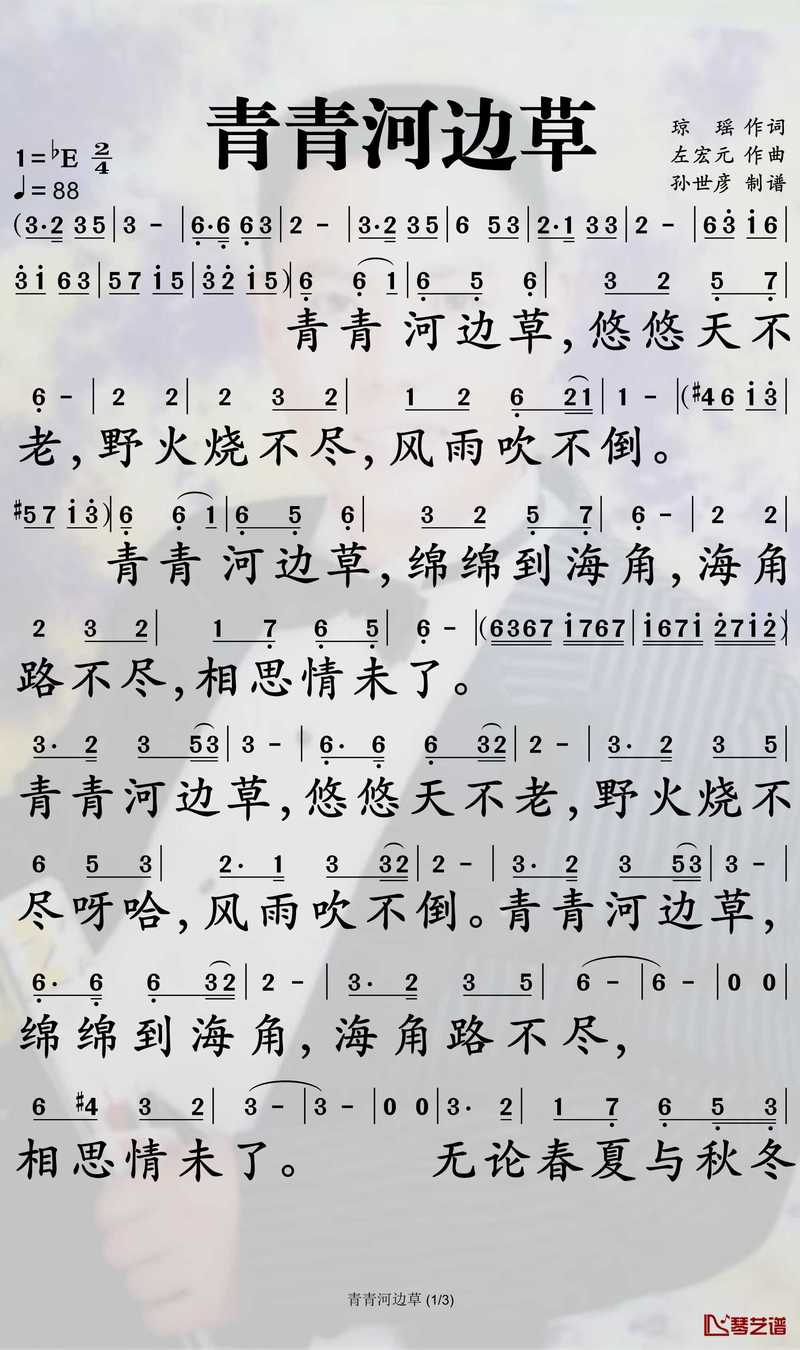 青青河边草
1=♭E 2/4
♩=88
琼 瑶 作词
左宏元 作曲
孙世彦 制谱
(3·2 35|3 -|6·6 63|2 -|3·2 35|6 53|2·1 33|2 -|63 i6|
3i 63|57 i5|32 i5)|6 6 1|6 5 6| 3 2 5 7|
青青河边草,悠悠天不
6 -|2 2 2 3 2| 1 2 6 21|1 -|(#46 i3|
老,野火烧不尽,风雨吹不倒。
#57 i3)|6 6 1|6 5 6| 3 2 5 7|6 -|2 2|
青青河边草,绵绵到海角,海角
2 3 2| 1 7 6 5|6 -|(6367 i767|i67i 27i2)|
路不尽,相思情未了。
3· 2 3 53|3 -|6· 6 6 32|2 -|3· 2 3 5|
青青河边草,悠悠天不老,野火烧不
6 5 3| 2· 1 3 32|2 -|3· 2 3 53|3 -|
尽呀哈,风雨吹不倒。青青河边草,
6· 6 6 32|2 -|3· 2 3 5|6 -|6 -|0 0|
绵绵到海角,海角路不尽,
6 #4 3 2|3 -|3 -|0 0|3· 2| 1 7 6 5 3|
相思情未了。 无论春夏与秋冬
青青河边草 (1/3)
琴艺谱